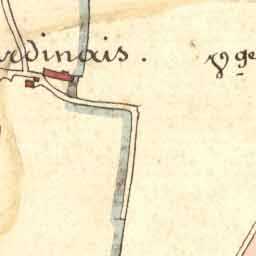 rdinais. Vge